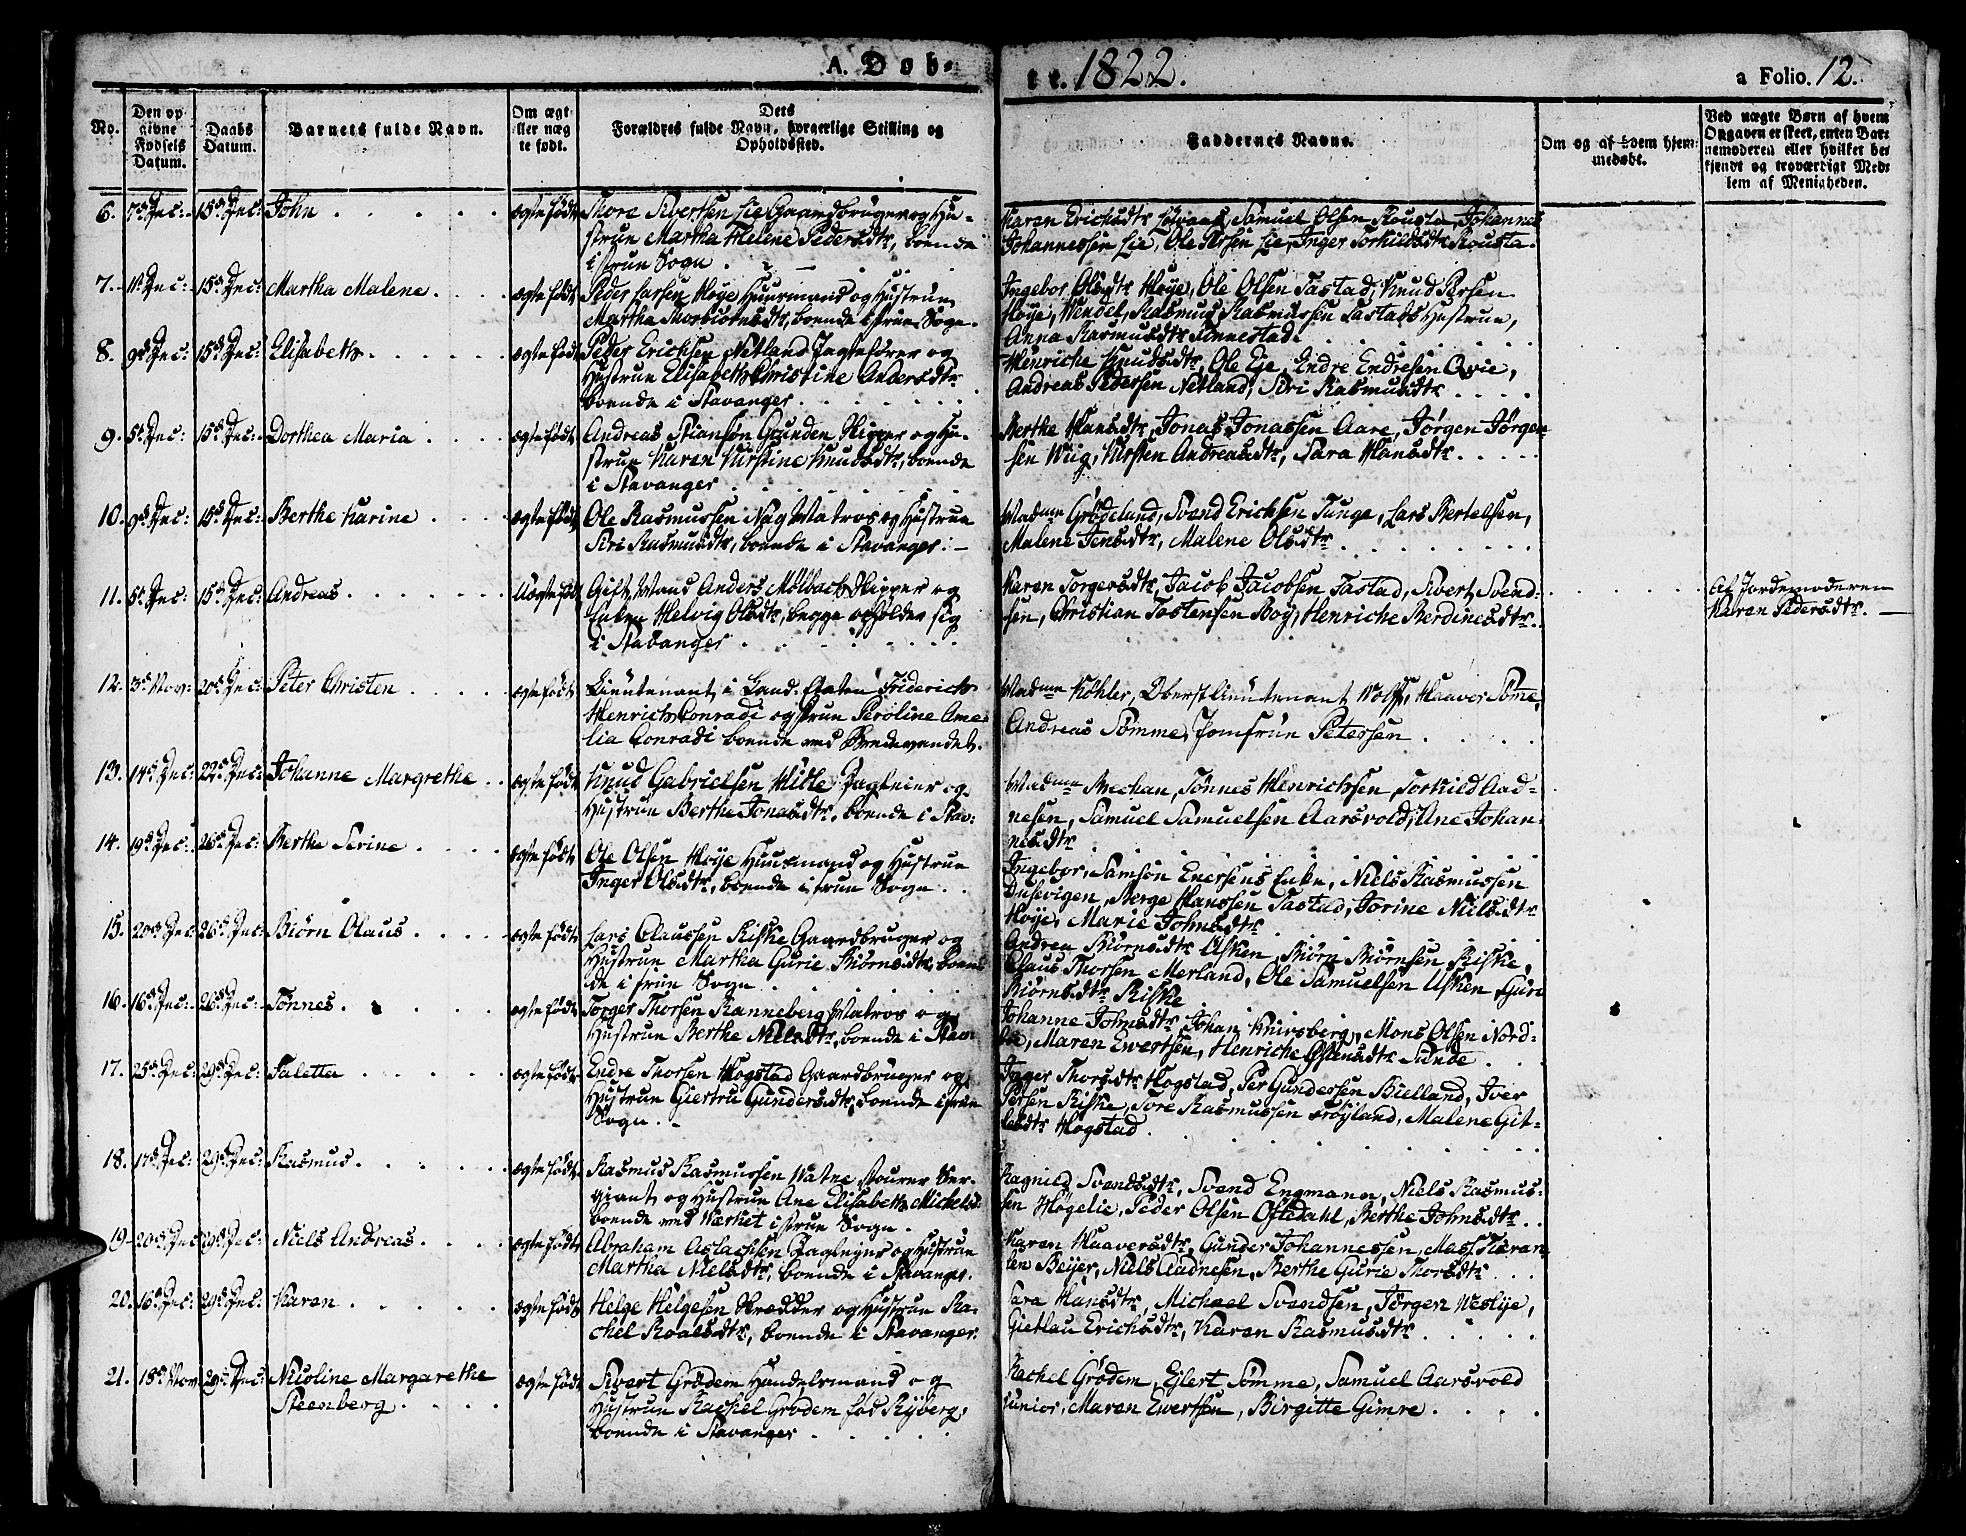 A. Døb-
te. 1822.
a Folio. 12.
No.
Den op
givne
Fødsels
Datum.
Daabs
Datum.
Barnets fulde Navn.
Om ægte
eller uæg
te født.
Dets
Forældres fulde Navn, borgerlige Stilling og
Opholdssted.
Faddernes Navne.
Om og af hvem hjem-
medøbt.
Ved uægte Børn af hvem
Opgaven er skeet, enten Bar-
nemoderen eller hvilket be-
kjendt og troværdigt Med-
lem af Menigheden.
6. 7de Dec: 15de Dec: John
ægte født
Thore Sivertsen Lie Gaardbruger og Hu-
strue Martha Helene Pedersdtr, boende
i frue Sogn
Karen Erichsdtr, Samuel Olsen Rousta, Johannes
Johannessen Lie, Ole Persen Lie, Inger Torkildsdtr Rousta.
7. 11te Dec: 15de Dec: Martha Malene
ægte født
Peder Larsen Høye Huusmand og Hustrue
Martha Thorbiørnsdtr, boende i frue Sogn.
Ingebor Olsdtr Høye, Ole Olsen Tastad, Knud Persen
Høye, Wendel, Rasmus Rasmussen Tastads Hustrue,
Anna Rasmusdtr Tinnestad.
8. 9de Dec: 15de Dec: Elisabeth
ægte født
Peder Erichsen Netland Jagtefører og
Hustrue Elisabeth Christine Andersdtr
boende i Stavanger
Henriche Knudsdtr, Ole Eje, Endre Endresen Qvie,
Andreas Pedersen Netland, Siri Rasmusdtr
9. 5te Dec: 15de Dec: Dorthea Maria
ægte født
Andreas Stiansøn Grunden Skipper og Hu-
strue Karen Kirstine Knudsdtr, boende
i Stavanger
Berthe Hansdtr, Jonas Jonassen Aare, Jørgen Jørgen-
sen Wiig, Kirsten Andreasdtr, Sara Hansdtr
10. 9de Dec: 15de Dec: Berthe Karine
ægte født
Ole Rasmussen Nag Matros og Hustrue
Siri Rasmusdtr, boende i Stavanger
Madme Grødeland, Svend Erichsen Tunge, Lars Bertelsen,
Malene Jensdtr, Malene Olsdtr
11. 5te Dec: 15de Dec: Andreas
Uægte født
Gift Mand Anders Mølbach Skipper og
Enken Helvig Olsdtr, begge opholder sig
i Stavanger
Karen Torgersdtr, Jacob Jacobsen Tastad, Sivert Svend-
sen, Christian Tostensen Boy, Henriche Berdinesdtr
Af Jordemoderen
Maren Pedersdtr.
12. 3de Nov: 20de Dec: Peter Christen
ægte født
Lieutenant i Land-Etaten Friderich
Henrich Conradi og frue Peroline Ame-
lia Conradi boende ved Bredevandet.
Madme Køhler, Oberstlieutenant Wolff, Haaver Sømme,
Andreas Sømme, Jomfrue Petersen
13. 14de Dec: 22de Dec: Johanne Margrethe
ægte født
Knud Gabrielsen Hille Dagleier og
Hustrue Berthe Jonasdtr, boende i Stav:
Madme Mechan, Tønnes Henrichsen, Torkild Aad-
nesen, Samuel Samuelsen Aarsvold, Ane Johan-
nesdtr
14. 19de Dec: 26de Dec: Berthe Serine
ægte født
Ole Olsen Høye Huusmand og Hustrue
Inger Olsdtr, boende i frue Sogn
Ingebor, Samson Enersens Enke, Niels Rasmussen
Dusevigen, Berge Hanssen Tastad, Torine Nielsdtr
Høye, Marie Johnsdtr
15. 20de Dec: 26de Dec: Biørn Olaus
ægte født
Lars Claussen Riske Gaardbruger og
Hustrue Martha Gurie Biørnsdtr, boen-
de i frue Sogn
Andrea Biørnsdtr Usken, Biørn Biørnsen Riske,
Claus Thorsen Merland, Ole Samuelsen Usken, Guri
Biørnsdtr Riske
16. 16de Dec: 26de Dec: Tønnes
ægte født
Torger Thorsen Ranneberg Matros og
Hustrue Berthe Nielsdtr, boende i Stav:
Johanne Johnsdtr, Johan Knivsberg, Mons Olsen Nord-
bøe, Maren Ewertsen, Henriche Østensdtr Sunde
17. 25de Dec: 29de Dec: Taletta
ægte født
Endre Thorsen Hogstad Gaardbruger og
Hustrue Giertru Gundersdtr, boende i frue
Sogn
Inger Thorsdtr Hogstad, Per Gundersen Bielland, Iver
Persen Riske, Tore Rasmussen Frøyland, Malene Git-
lesdtr Hogstad
18. 17de Dec: 29de Dec: Rasmus
ægte født
Rasmus Rasmussen Watne Ser-
giant og Hustrue Ane Elisabeth Michelsd:
boende ved Værket i frue Sogn
Ragnild Svendsdtr, Svend Engmann, Niels Rasmus-
sen Høgelie, Peder Olsen Oftedahl, Berthe Johnsdtr
19. 20de Dec: 29de Dec: Niels Andreas
ægte født
Abraham Aslachsen Dagleyer og Hustrue
Martha Nielsdtr, boende i Stavanger.
Karen Haaversdtr, Gunder Johannessen, Mass Karen
Beijer, Niels Aadnesen, Berthe Gurie Thorsdtr
20. 16de Dec: 29de Dec: Karen
ægte født
Helge Helgesen Skrædder og Hustrue Ra-
chel Roalsdtr, boende i Stavanger
Sara Hansdtr, Michael Svendsen, Jørgen Weslye,
Gietlau Erichsdtr, Karen Rasmusdtr
21. 18de Nov: 29de Dec: Nicoline Margarethe
Steenberg
ægte født
Sivert Grødem Handelsmand og
Hustrue Rachel Grødem fød Ryberg,
boende i Stavanger
Rachel Grødem, Ejlert Sømme, Samuel Aarsvold
junior, Maren Ewertsen, Birgitte Gimre